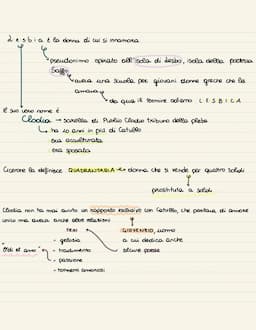 Lesbia è la donna di cui si innamora
pseudonimo ispirato all'isola di Lesbo, isola della poetessa
Saffo
aveva una scuola per giovani donne greche che la
amava
da qua il termine odierno LESBICA
Il suo vero nome è
Clodia → sorella di Publio Clodio tribuno della plebe
ha 10 anni in più di Catullo
era acculturata
era sposata
Cicerone la definisce QUADRANTARIA → donna che si vende per quattro soldi
prostituta a soldi
Clodia non ha mai avuto un rapporto esclusivo con Catullo, che parlava di amore
unico ma aveva anche altre relazioni
TEMI
GIOVENZIO, uomo
- gelosia
a cui dedica anche
"Odi et amo"
- tradimento
alcune poesie
- passione
- tormenti amorosi